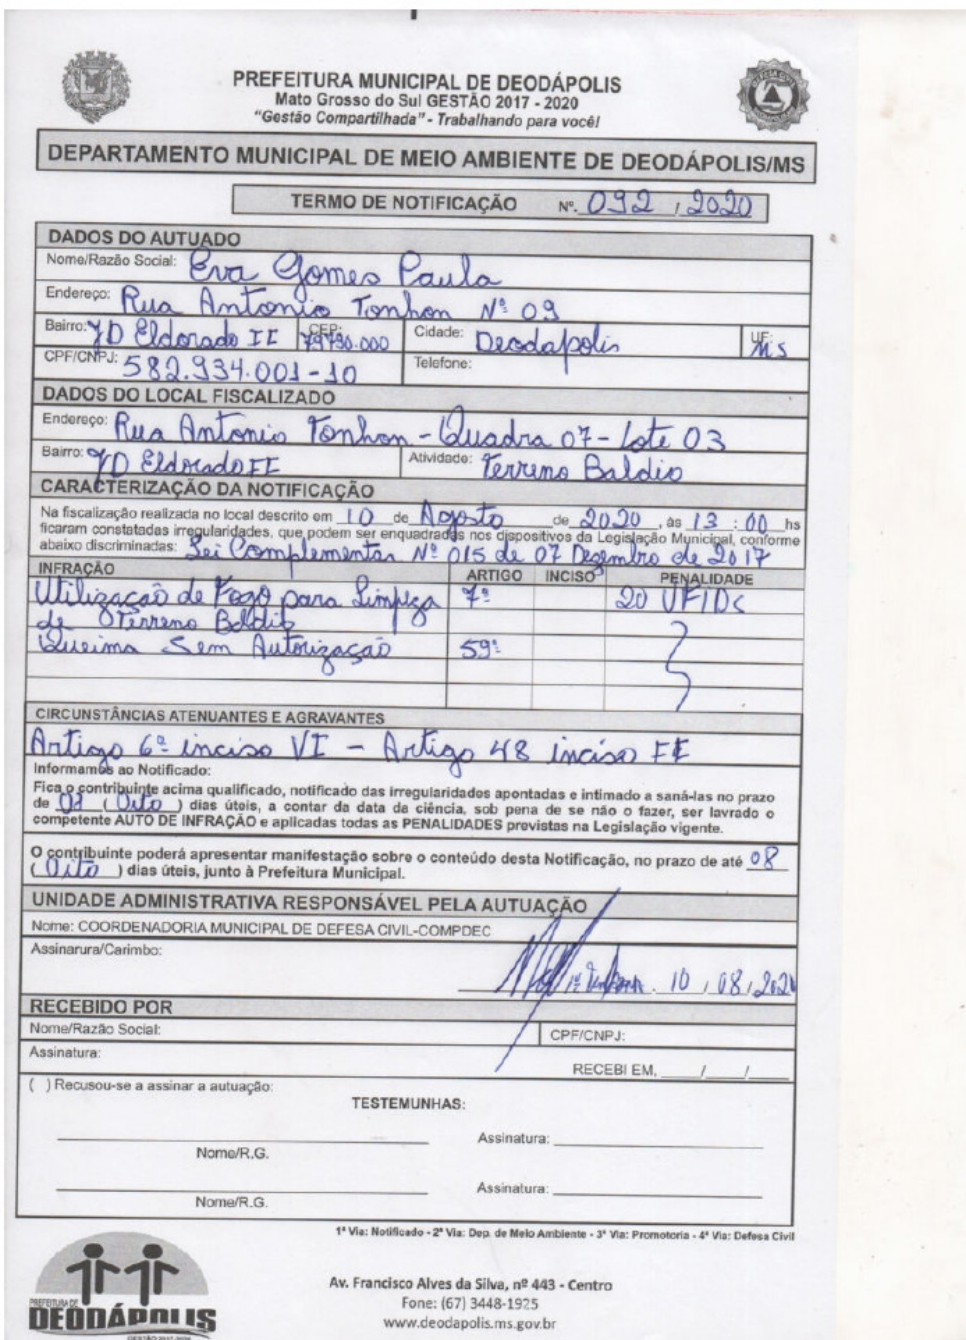 PREFEITURA MUNICIPAL DE DEODÁPOLIS
Mato Grosso do Sul GESTÃO 2017 - 2020
"Gestão Compartilhada" - Trabalhando para você!
DEPARTAMENTO MUNICIPAL DE MEIO AMBIENTE DE DEODÁPOLIS/MS
TERMO DE NOTIFICAÇÃO Nº. 092 / 2020
DADOS DO AUTUADO
Nome/Razão Social: Eva Gomes Paula
Endereço: Rua Antonio Tonhon Nº 09
Bairro: JD Eldorado II CEP: 79790.000 Cidade: Deodapolis UF: MS
CPF/CNPJ: 582.934.001-10 Telefone:
DADOS DO LOCAL FISCALIZADO
Endereço: Rua Antonio Tonhon - Quadra 07 - Lote 03
Bairro: JD Eldorado II Atividade: Terreno Baldio
CARACTERIZAÇÃO DA NOTIFICAÇÃO
Na fiscalização realizada no local descrito em 10 de Agosto de 2020, às 13 : 00 hs
ficaram constatadas irregularidades, que podem ser enquadradas nos dispositivos da Legislação Municipal, conforme
abaixo discriminadas: Lei Complementar Nº 015 de 07 Dezembro de 2017
INFRAÇÃO ARTIGO INCISO PENALIDADE
Utilização de Fogo para Limpeza 7º 20 UFIDs
de Terreno Baldio
Queima Sem Autorização 59º
CIRCUNSTÂNCIAS ATENUANTES E AGRAVANTES
Artigo 6º inciso VI - Artigo 48 inciso II
Informamos ao Notificado:
Fica o contribuinte acima qualificado, notificado das irregularidades apontadas e intimado a saná-las no prazo
de 08 ( Oito ) dias úteis, a contar da data da ciência, sob pena de se não o fazer, ser lavrado o
competente AUTO DE INFRAÇÃO e aplicadas todas as PENALIDADES previstas na Legislação vigente.
O contribuinte poderá apresentar manifestação sobre o conteúdo desta Notificação, no prazo de até 08
( Oito ) dias úteis, junto à Prefeitura Municipal.
UNIDADE ADMINISTRATIVA RESPONSÁVEL PELA AUTUAÇÃO
Nome: COORDENADORIA MUNICIPAL DE DEFESA CIVIL-COMPDEC
Assinarura/Carimbo:
10 / 08 / 2020
RECEBIDO POR
Nome/Razão Social: CPF/CNPJ:
Assinatura: RECEBI EM, ____/____/____
( ) Recusou-se a assinar a autuação:
TESTEMUNHAS:
Assinatura:
Nome/R.G.
Assinatura:
Nome/R.G.
1ª Via: Notificado - 2ª Via: Dep. de Meio Ambiente - 3ª Via: Promotoria - 4ª Via: Defesa Civil
PREFEITURA DE
DEODÁPOLIS
GESTÃO 2017-2020
Av. Francisco Alves da Silva, nº 443 - Centro
Fone: (67) 3448-1925
www.deodapolis.ms.gov.br